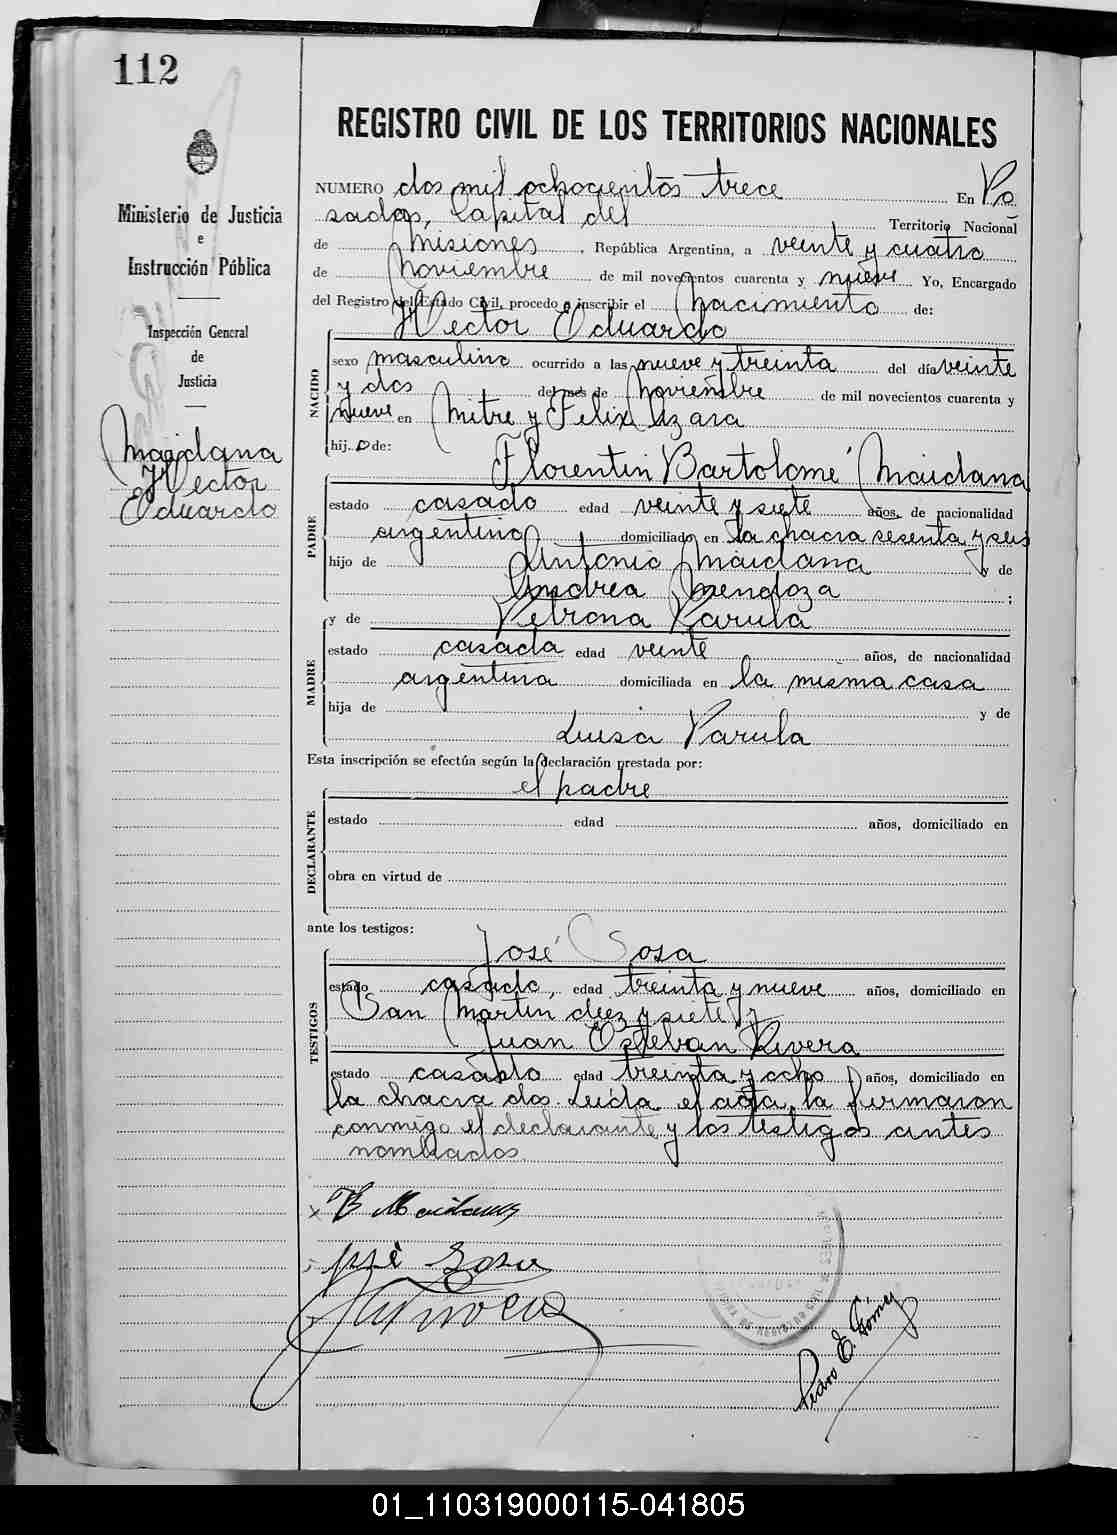 112
Ministerio de Justicia
e
Instrucción Pública
Inspección General
de
Justicia
Maidana
Hector
Eduardo
REGISTRO CIVIL DE LOS TERRITORIOS NACIONALES
NUMERO dos mil ochocientos trece En Po
sadas, Capital del Territorio Nacional
de Misiones, República Argentina, a veinte y cuatro
de Noviembre de mil novecientos cuarenta y nueve Yo, Encargado
del Registro del Estado Civil, procedo a inscribir el Nacimiento de:
Hector Eduardo
NACIDO
sexo masculino ocurrido a las nueve y treinta del día veinte
y dos del mes de Noviembre de mil novecientos cuarenta y
nueve en Mitre y Felix Azara
hij o de:
Florentin Bartolomé Maidana
PADRE
estado casado edad veinte y siete años, de nacionalidad
argentina domiciliado en la chacra sesenta y seis
hijo de Antonio Maidana y de
Andrea Mendoza ;
y de Petrona Parula
MADRE
estado casada edad veinte años, de nacionalidad
argentina domiciliada en la misma casa
hija de y de
Luisa Parula
Esta inscripción se efectúa según la declaración prestada por:
el padre
DECLARANTE
estado edad años, domiciliado en
obra en virtud de
ante los testigos:
José Sosa
TESTIGOS
estado casado, edad treinta y nueve años, domiciliado en
San Martin diez y siete y
Juan Esteban Rivera
estado casado edad treinta y ocho años, domiciliado en
la chacra dos. Leída el acta, la firmaron
conmigo el declarante y los testigos antes
nombrados.
B Maidana
José Sosa
Pedro E. Gómez
01_110319000115-041805